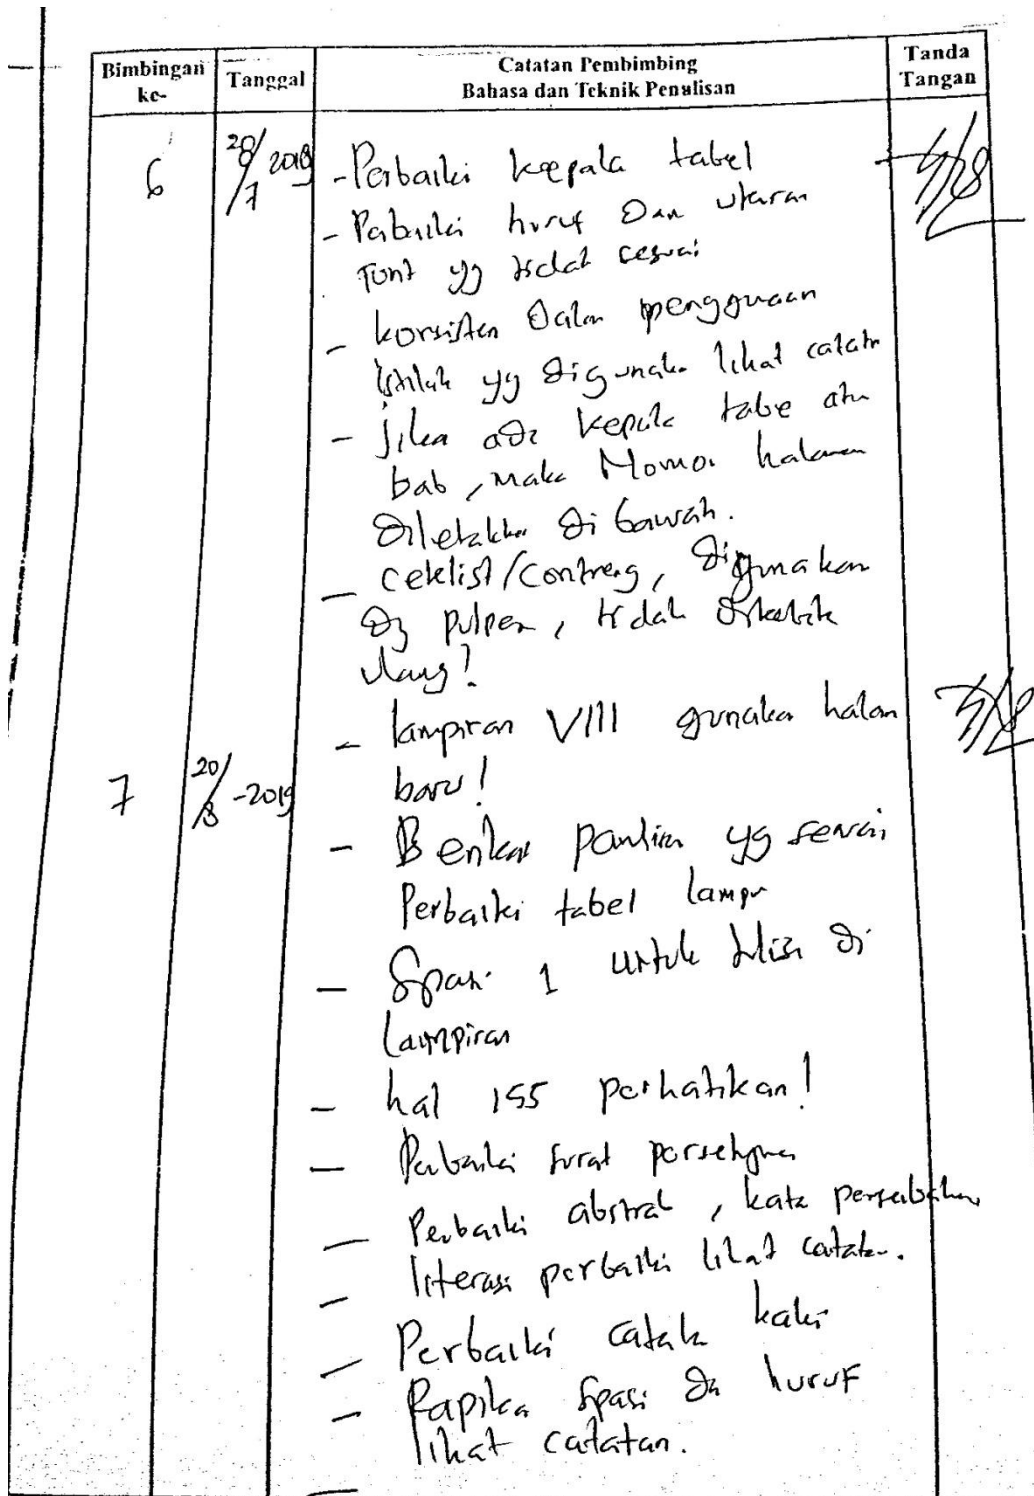 Bimbingan ke-
Tanggal
Catatan Pembimbing
Bahasa dan Teknik Penulisan
Tanda Tangan
6
28/7 2019
- Perbaiki kepala tabel
- Perbaiki huruf Dan ukuran
Font yg tidak sesuai
- konsisten Dalam penggunaan
istilah yg digunaka lihat catatn
- jika ada kepala tabe atu
bab, maka Nomor halaman
Diletakka di bawah.
- ceklist/contreng, digunakan
dg pulpen, tidak diketik
ulang!
- lampiran VIII gunaka halam
baru!
7
20/8-2019
- Berikan yg sesuai
Perbaiki tabel lampr
- Spasi 1 untuk di
Lampiran
- hal 155 perhatikan!
- Perbaiki surat persetujuan
- Perbaiki abstrak, kata persembahan
- literasi perbaiki lihat catatan.
- Perbaiki catata kaki
- Rapika spasi da huruf
lihat catatan.
-